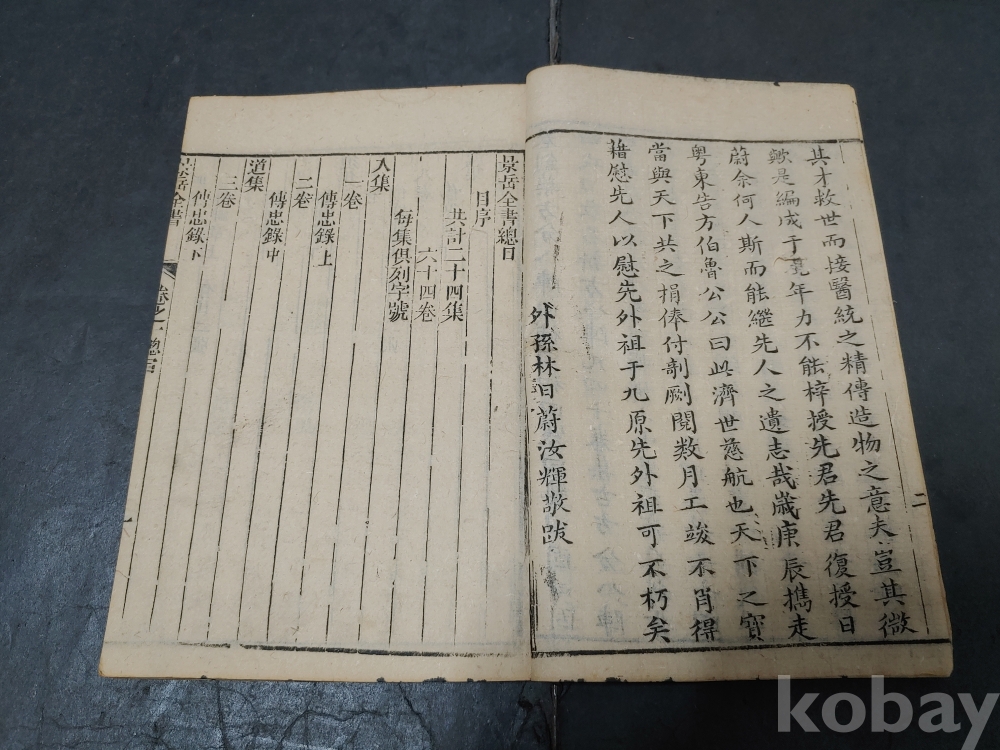 其才救世而接醫統之精傳造物之意夫豈其微
歟是編成于晚年力不能梓授先君先君復授日
蔚余何人斯而能繼先人之遺志哉歲庚辰攜走
粤東告方伯魯公公曰此濟世慈航也天下之寶
當與天下共之捐俸付剞劂閱数月工竣不肖得
藉慰先人以慰先外祖于九原先外祖可不朽矣
外孫林日蔚汝輝敬跋
二
景岳全書總目
目序
共計二十四集
六十四卷
每集俱列字號
入集
一卷
傳忠錄上
二卷
傳忠錄中
道集
三卷
傳忠錄下
景岳全書
卷之一
總目
一
kobay